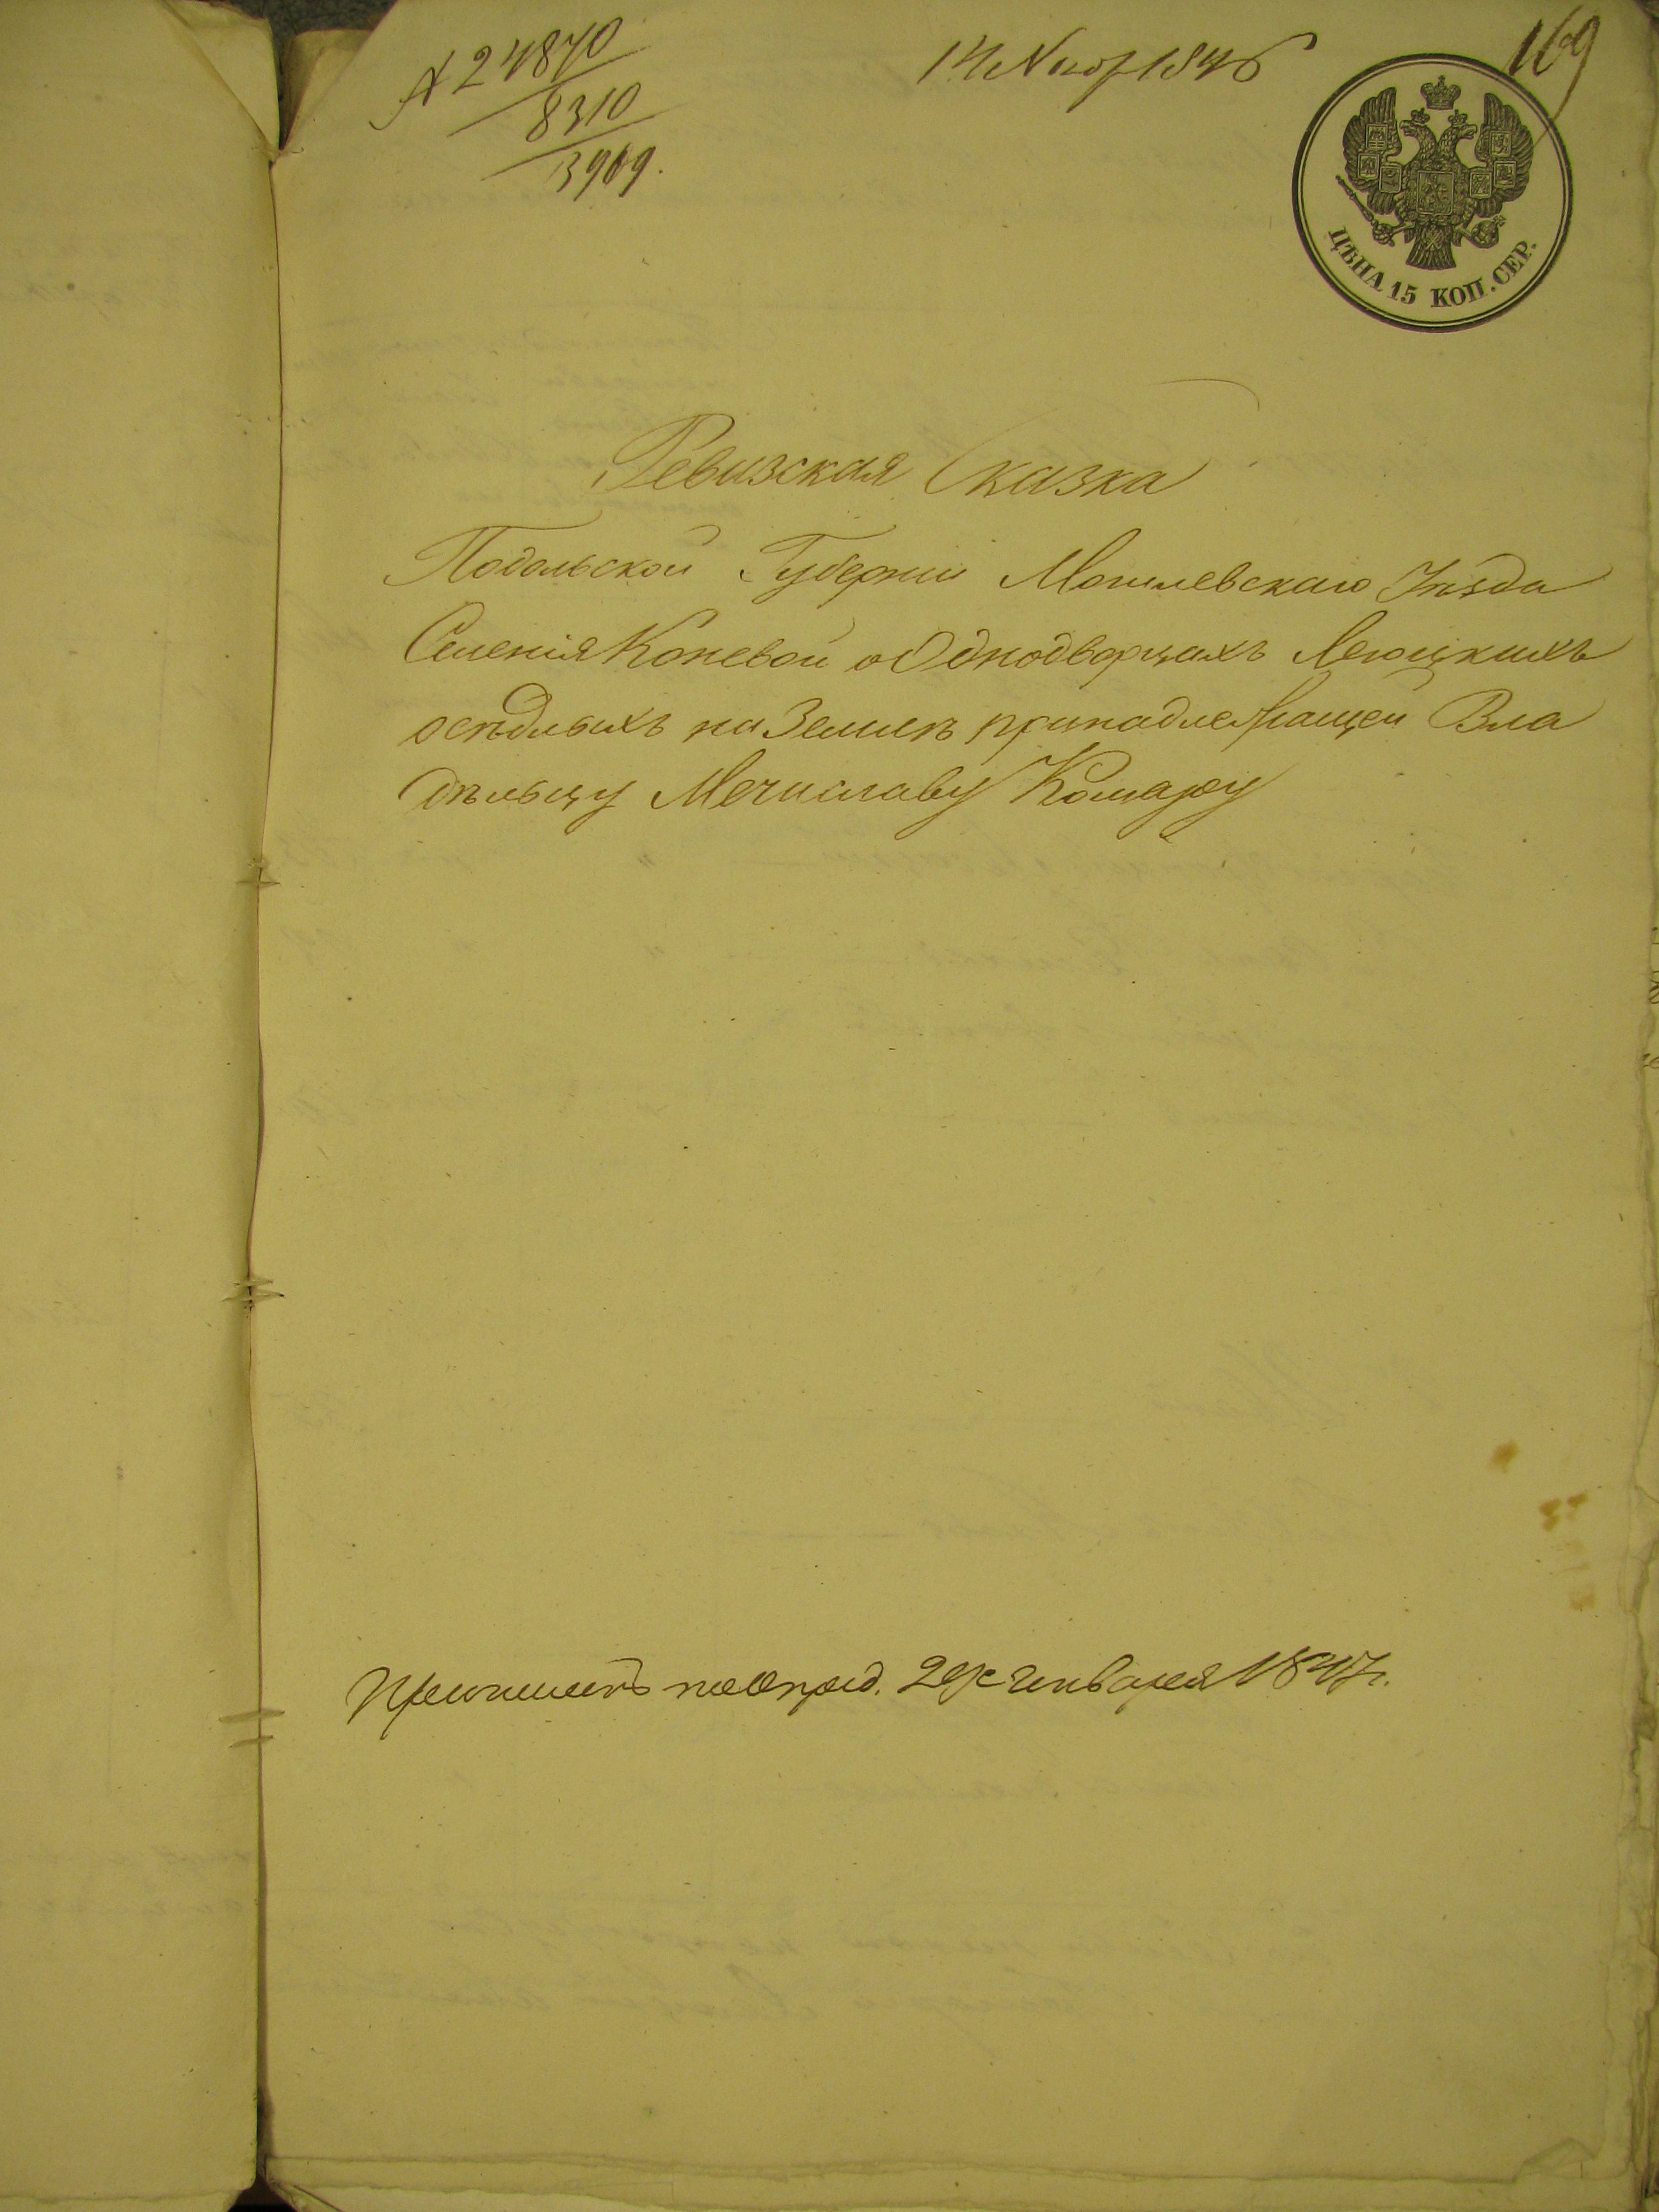 № 24870
14 Ноябр 1846
169
8310
3909.
ЦѢНА 15 КОП. СЕР.
Ревизская Сказка
Подольской Губерніи Могилевскаго Уѣзда
Селенія Коневой о Однодворцахъ
осѣдлыхъ на Землѣ принадлежащей Вла
дѣльцу Мечиславу Комару
по опред. Января 1847 г.